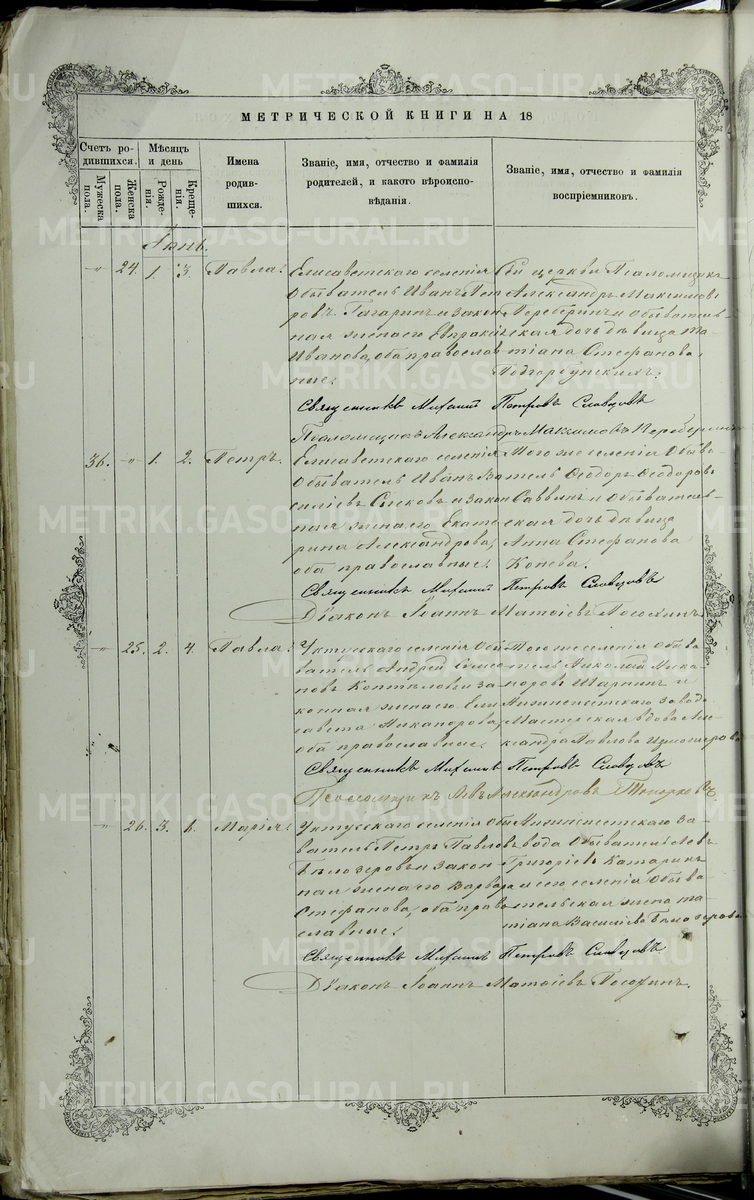 МЕТРИЧЕСКОЙ КНИГИ НА 18
Счетъ ро-
дившихся.
Мужеска пола.
Женска пола.
Мѣсяцъ
и день
Рожде-
нія.
Креще-
нія.
Имена
родив-
шихся.
Званіе, имя, отчество и фамилія
родителей, и какого вѣроиспо-
вѣданія.
Званіе, имя, отчество и фамилія
воспріемниковъ.
Іюнь.
-"- 24. 1. 3. Павла.
Елисаветскаго селенія
Обыватель Иванъ Пет
ровъ Гагаринъ и закон
ная жена его Евпраксія
Иванова, оба православ
ные.
Сей церкви Псаломщикъ
Александръ Максимовъ
Переберинъ и обыватель
ская дочь дѣвица Та
тіана Стефанова
Священникъ Михаилъ Петровъ Словцовъ
Псаломщикъ Александръ Максимовъ Переберинъ
36. -"- 1. 2. Петръ.
Елисаветскаго селенія
Обыватель Иванъ Ва
силіевъ и закон
ная жена его Екате
рина Александрова,
оба православные.
Того же селенія Обыва
тель Ѳеодоръ Ѳеодоровъ
Саввинъ и Обыватель
ская дочь дѣвица
Анна Стефанова
Копева.
Священникъ Михаилъ Петровъ Словцовъ
Діаконъ Іоаннъ Матѳіевъ
-"- 25. 2. 4. Павла.
Уктусскаго селенія Обы
ватель Андрей Симео
новъ Коптяловъ и за
конная жена его Ели
савета Никанорова,
оба православные.
Того же селенія Обыва
тель Николай Ника
норовъ Шарпинъ и
Нижнеисетскаго завода
Мастерская вдова Але
ксандра Павлова
Священникъ Михаилъ Петровъ Словцовъ
Псаломщикъ Левъ Александровъ Топорковъ.
-"- 26. 3. 6. Марія.
Уктусскаго селенія Обы
ватель Петръ Павловъ
Бѣлозеровъ и закон
ная жена его Варвара
Стефанова, оба право
славные.
Нижнеисетскаго за
вода Обыватель Левъ
Григоріевъ Катаринъ
и сего селенія Обыва
тельская жена Та
тіана Василіева Бѣлозерова
Священникъ Михаилъ Петровъ Словцовъ
Діаконъ Іоаннъ Матѳіевъ
METRIKI.GASO-URAL.RU